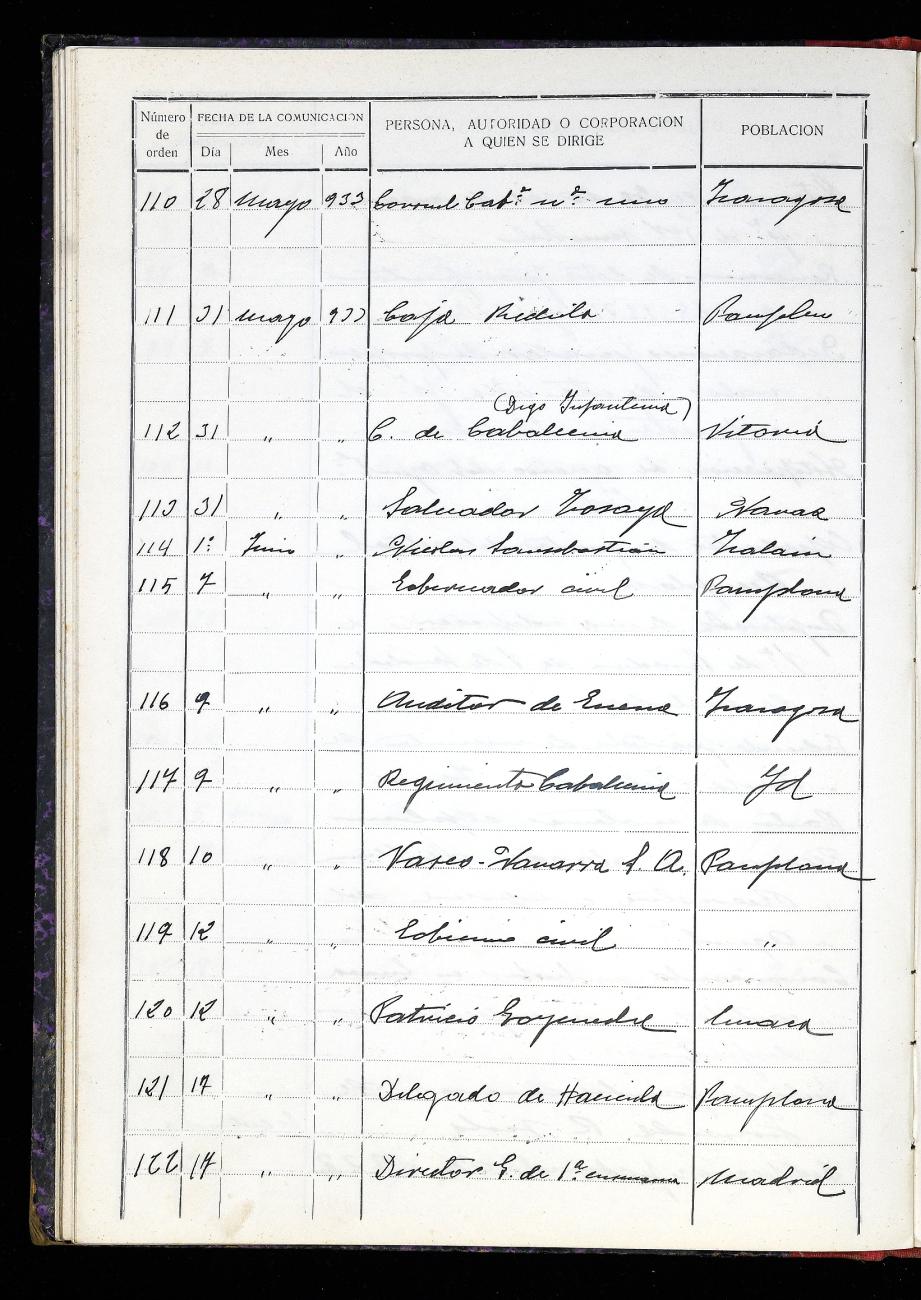 Número de orden | FECHA DE LA COMUNICACION | PERSONA, AUTORIDAD O CORPORACION A QUIEN SE DIRIGE | POBLACION
Día | Mes | Año
110 28 Mayo 933 Cab.ª nº uno Zaragoza
111 31 Mayo 933 Caja
(Digo Infanteria)
112 31 " " C. de Caballeria Vitoria
113 31 " " Salvador
114 1º Junio " Nicolas Sansebastián
115 7 " " Gobernador civil Pamplona
116 9 " " Auditor de Guerra Zaragoza
117 9 " " Regimiento Caballeria Id
118 10 " " Vasco-Navarra S. A. Pamplona
119 12 " " Gobierno civil "
120 12 " " Patricio
121 17 " " Delegado de Hacienda Pamplona
122 17 " " Director G. de 1ª enseñanza Madrid